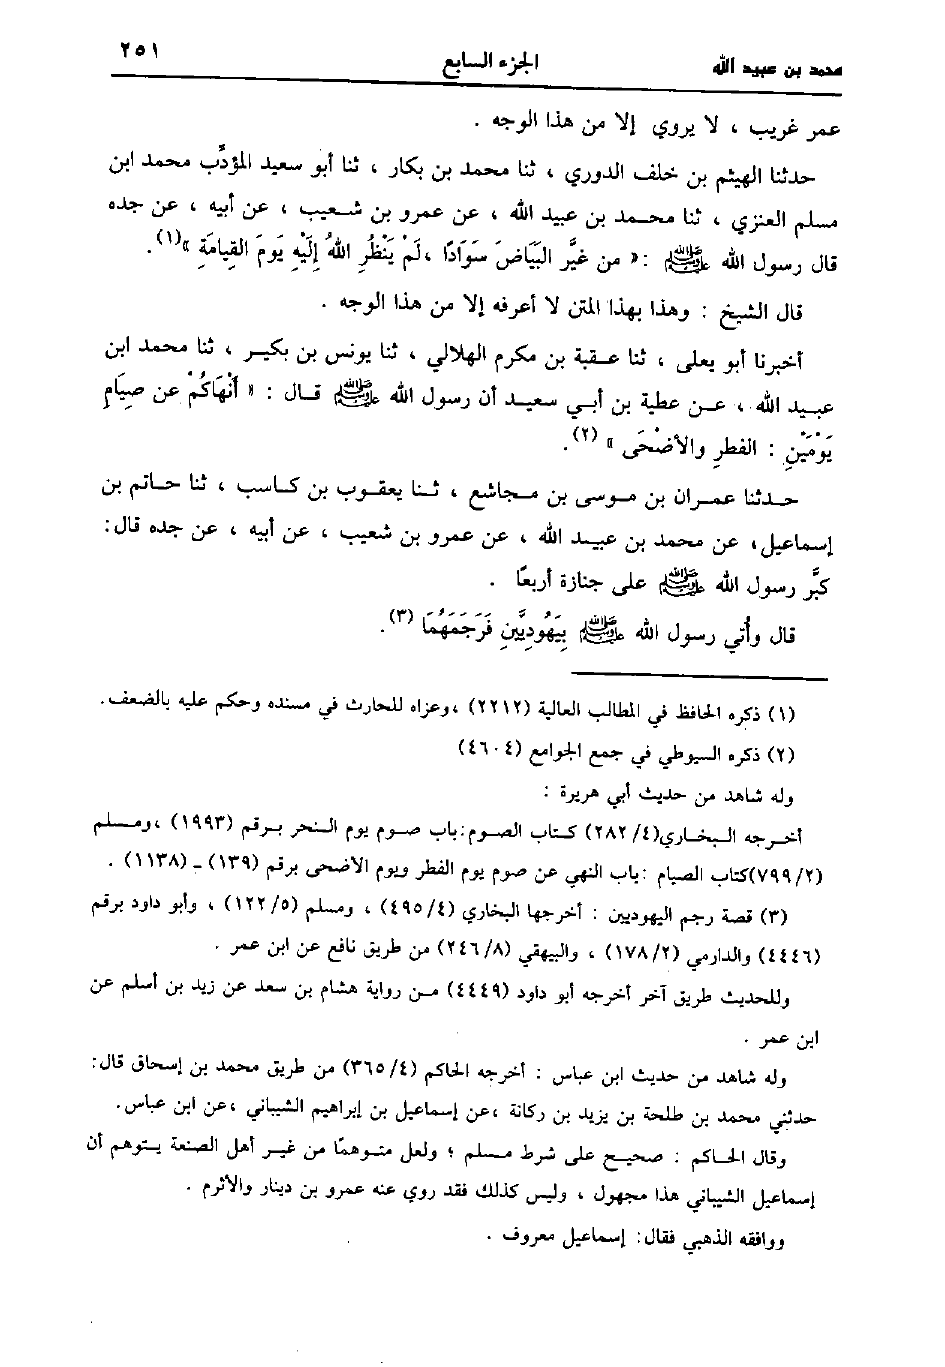 محمد بن عبيد الله الجزء السابع ٢٥١
عمر غريب ، لا يروي إلا من هذا الوجه .
حدثنا الهيثم بن خلف الدوري ، ثنا محمد بن بكار ، ثنا أبو سعيد المؤدِّب محمد ابن
مسلم العنزي ، ثنا محمد بن عبيد الله ، عن عمرو بن شعيب ، عن أبيه ، عن جده
قال رسول الله ﷺ : « من غيَّر البَيَاضَ سَوَادًا ، لَمْ يَنْظُرِ اللهُ إِلَيْهِ يَومَ القِيامَةِ »(١).
قال الشيخ : وهذا بهذا المتن لا أعرفه إلا من هذا الوجه .
أخبرنا أبو يعلى ، ثنا عقبة بن مكرم الهلالي ، ثنا يونس بن بكير ، ثنا محمد ابن
عبيد الله ، عن عطية بن أبي سعيد أن رسول الله ﷺ قال : « أَنْهَاكُمْ عن صِيَامِ
يَوْمَيْنِ : الفطرِ والأضْحَى » (٢).
حدثنا عمران بن موسى بن مجاشع ، ثنا يعقوب بن كاسب ، ثنا حاتم بن
إسماعيل، عن محمد بن عبيد الله ، عن عمرو بن شعيب ، عن أبيه ، عن جده قال:
كبَّر رسول الله ﷺ على جنازة أربعًا .
قال وأُتي رسول الله ﷺ بِيَهُودِيَّينِ فَرَجَمَهُمَا (٣).
(١) ذكره الحافظ في المطالب العالية (٢٢١٢) ،وعزاه للحارث في مسنده وحكم عليه بالضعف.
(٢) ذكره السيوطي في جمع الجوامع (٤٦٠٤)
وله شاهد من حديث أبي هريرة :
أخرجه البخاري(٢٨٢/٤) كتاب الصوم:باب صوم يوم النحر برقم (١٩٩٣) ،ومسلم
(٧٩٩/٢)كتاب الصيام :باب النهي عن صوم يوم الفطر ويوم الأضحى برقم (١٣٩) ـ (١١٣٨) .
(٣) قصة رجم اليهوديين : أخرجها البخاري (٤٩٥/٤) ، ومسلم (١٢٢/٥) ، وأبو داود برقم
(٤٤٤٦) والدارمي (١٧٨/٢) ، والبيهقي (٢٤٦/٨) من طريق نافع عن ابن عمر .
وللحديث طريق آخر أخرجه أبو داود (٤٤٤٩) من رواية هشام بن سعد عن زيد بن أسلم عن
ابن عمر .
وله شاهد من حديث ابن عباس : أخرجه الحاكم (٣٦٥/٤) من طريق محمد بن إسحاق قال:
حدثني محمد بن طلحة بن يزيد بن ركانة ،عن إسماعيل بن إبراهيم الشيباني ،عن ابن عباس.
وقال الحاكم : صحيح على شرط مسلم ؛ ولعل متوهمًا من غير أهل الصنعة يتوهم أن
إسماعيل الشيباني هذا مجهول ، وليس كذلك فقد روي عنه عمرو بن دينار والأثرم .
ووافقه الذهبي فقال: إسماعيل معروف .